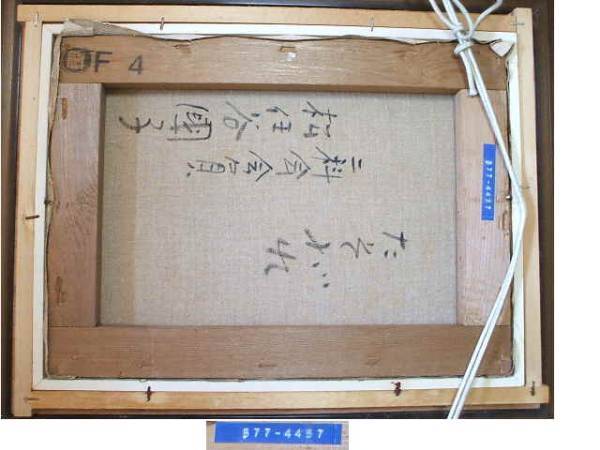 F 4
たそがれ
二科会会員
松任谷國子
577-4457
577-4457